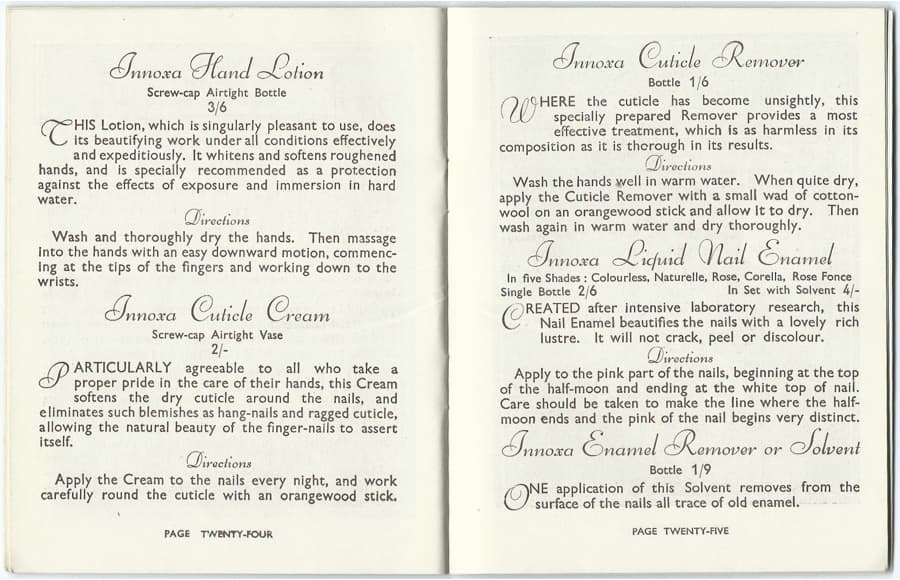 Innoxa Hand Lotion
Screw-cap Airtight Bottle
3/6
THIS Lotion, which is singularly pleasant to use, does
its beautifying work under all conditions effectively
and expeditiously. It whitens and softens roughened
hands, and is specially recommended as a protection
against the effects of exposure and immersion in hard
water.
Directions
Wash and thoroughly dry the hands. Then massage
into the hands with an easy downward motion, commenc-
ing at the tips of the fingers and working down to the
wrists.
Innoxa Cuticle Cream
Screw-cap Airtight Vase
2/-
PARTICULARLY agreeable to all who take a
proper pride in the care of their hands, this Cream
softens the dry cuticle around the nails, and
eliminates such blemishes as hang-nails and ragged cuticle,
allowing the natural beauty of the finger-nails to assert
itself.
Directions
Apply the Cream to the nails every night, and work
carefully round the cuticle with an orangewood stick.
PAGE TWENTY-FOUR
Innoxa Cuticle Remover
Bottle 1/6
WHERE the cuticle has become unsightly, this
specially prepared Remover provides a most
effective treatment, which is as harmless in its
composition as it is thorough in its results.
Directions
Wash the hands well in warm water. When quite dry,
apply the Cuticle Remover with a small wad of cotton-
wool on an orangewood stick and allow it to dry. Then
wash again in warm water and dry thoroughly.
Innoxa Liquid Nail Enamel
In five Shades : Colourless, Naturelle, Rose, Corella, Rose Fonce
Single Bottle 2/6 In Set with Solvent 4/-
CREATED after intensive laboratory research, this
Nail Enamel beautifies the nails with a lovely rich
lustre. It will not crack, peel or discolour.
Directions
Apply to the pink part of the nails, beginning at the top
of the half-moon and ending at the white top of nail.
Care should be taken to make the line where the half-
moon ends and the pink of the nail begins very distinct.
Innoxa Enamel Remover or Solvent
Bottle 1/9
ONE application of this Solvent removes from the
surface of the nails all trace of old enamel.
PAGE TWENTY-FIVE